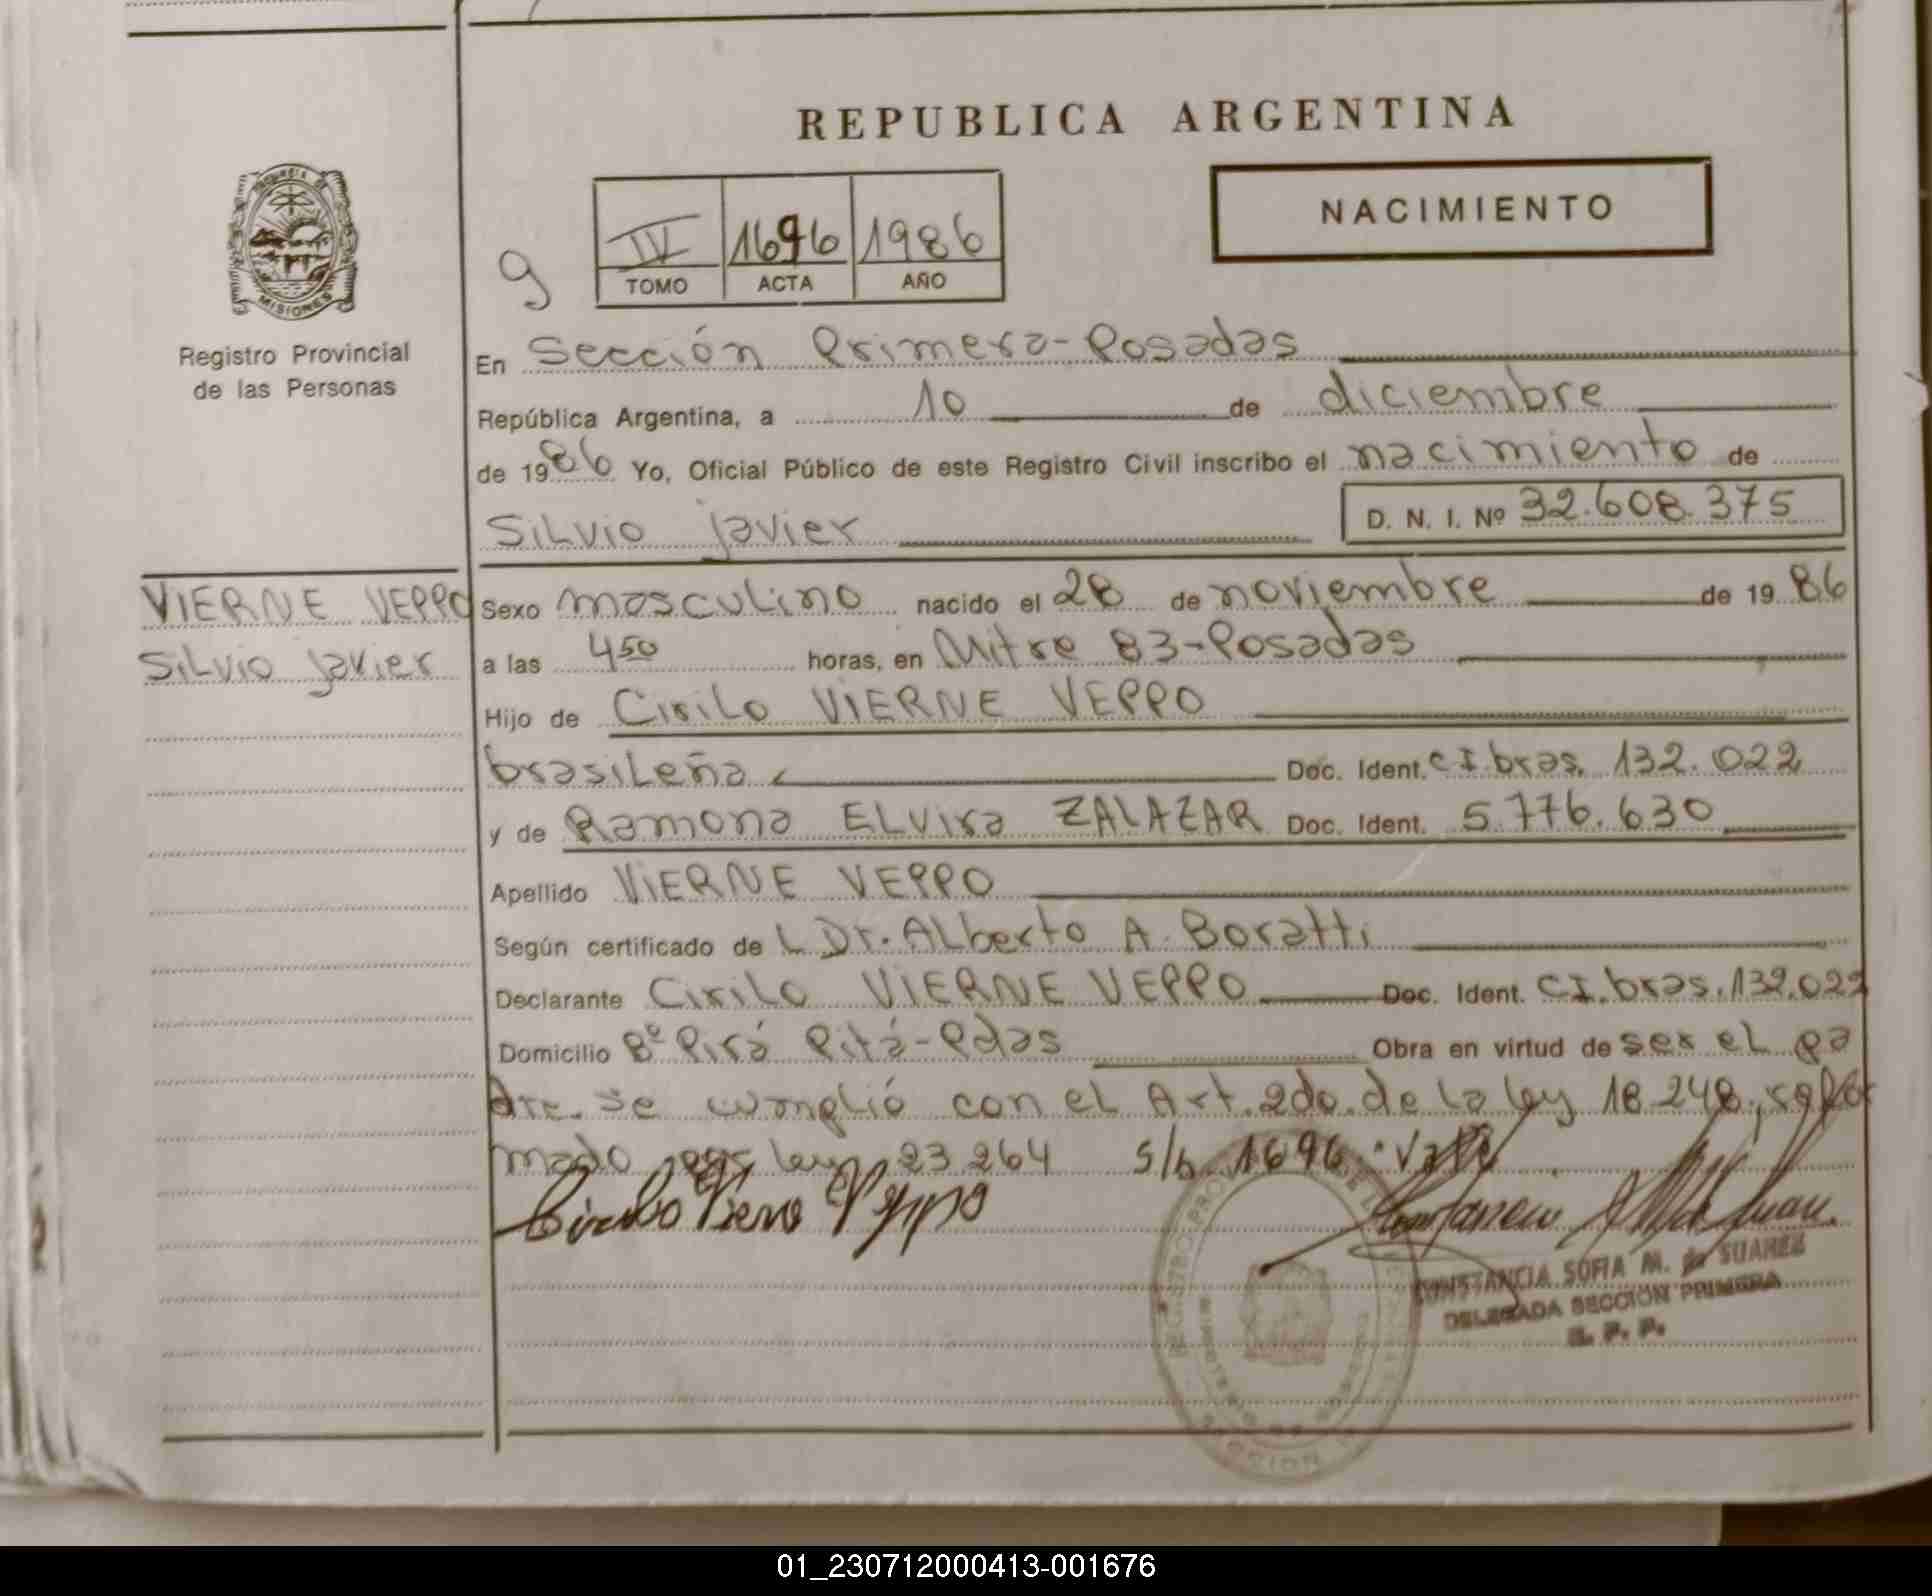 REPUBLICA ARGENTINA
NACIMIENTO
9
IV 1696 1986
TOMO ACTA AÑO
MISIONES
Registro Provincial
de las Personas
En Sección Primera-Posadas
República Argentina, a 10 de diciembre
de 1986 Yo, Oficial Público de este Registro Civil inscribo el nacimiento de
Silvio Javier D. N. I. Nº 32.608.375
VIERNE VEPPO
Silvio Javier
Sexo masculino nacido el 28 de noviembre de 19 86
a las 4 50 horas, en Mitre 83-Posadas
Hijo de Cirilo VIERNE VEPPO
brasileña Doc. Ident. C I. bras. 132.022
y de Ramona Elvira ZALAZAR Doc. Ident. 5.776.630
Apellido VIERNE VEPPO
Según certificado de L Dr. Alberto A. Boratti
Declarante Cirilo VIERNE VEPPO Doc. Ident. C I. bras. 132.022
Domicilio Bº Pirá Pitá-Pdas Obra en virtud de ser el pa
dre. Se cumplió con el Art. 2do. de la ley 18.248, refor
mado por ley 23.264 s/b 1696: Vale
Cirilo Vierne Veppo
CONSTANCIA SOFIA M. de SUAREZ
DELEGADA SECCION PRIMERA
R. P. P.
01_230712000413-001676